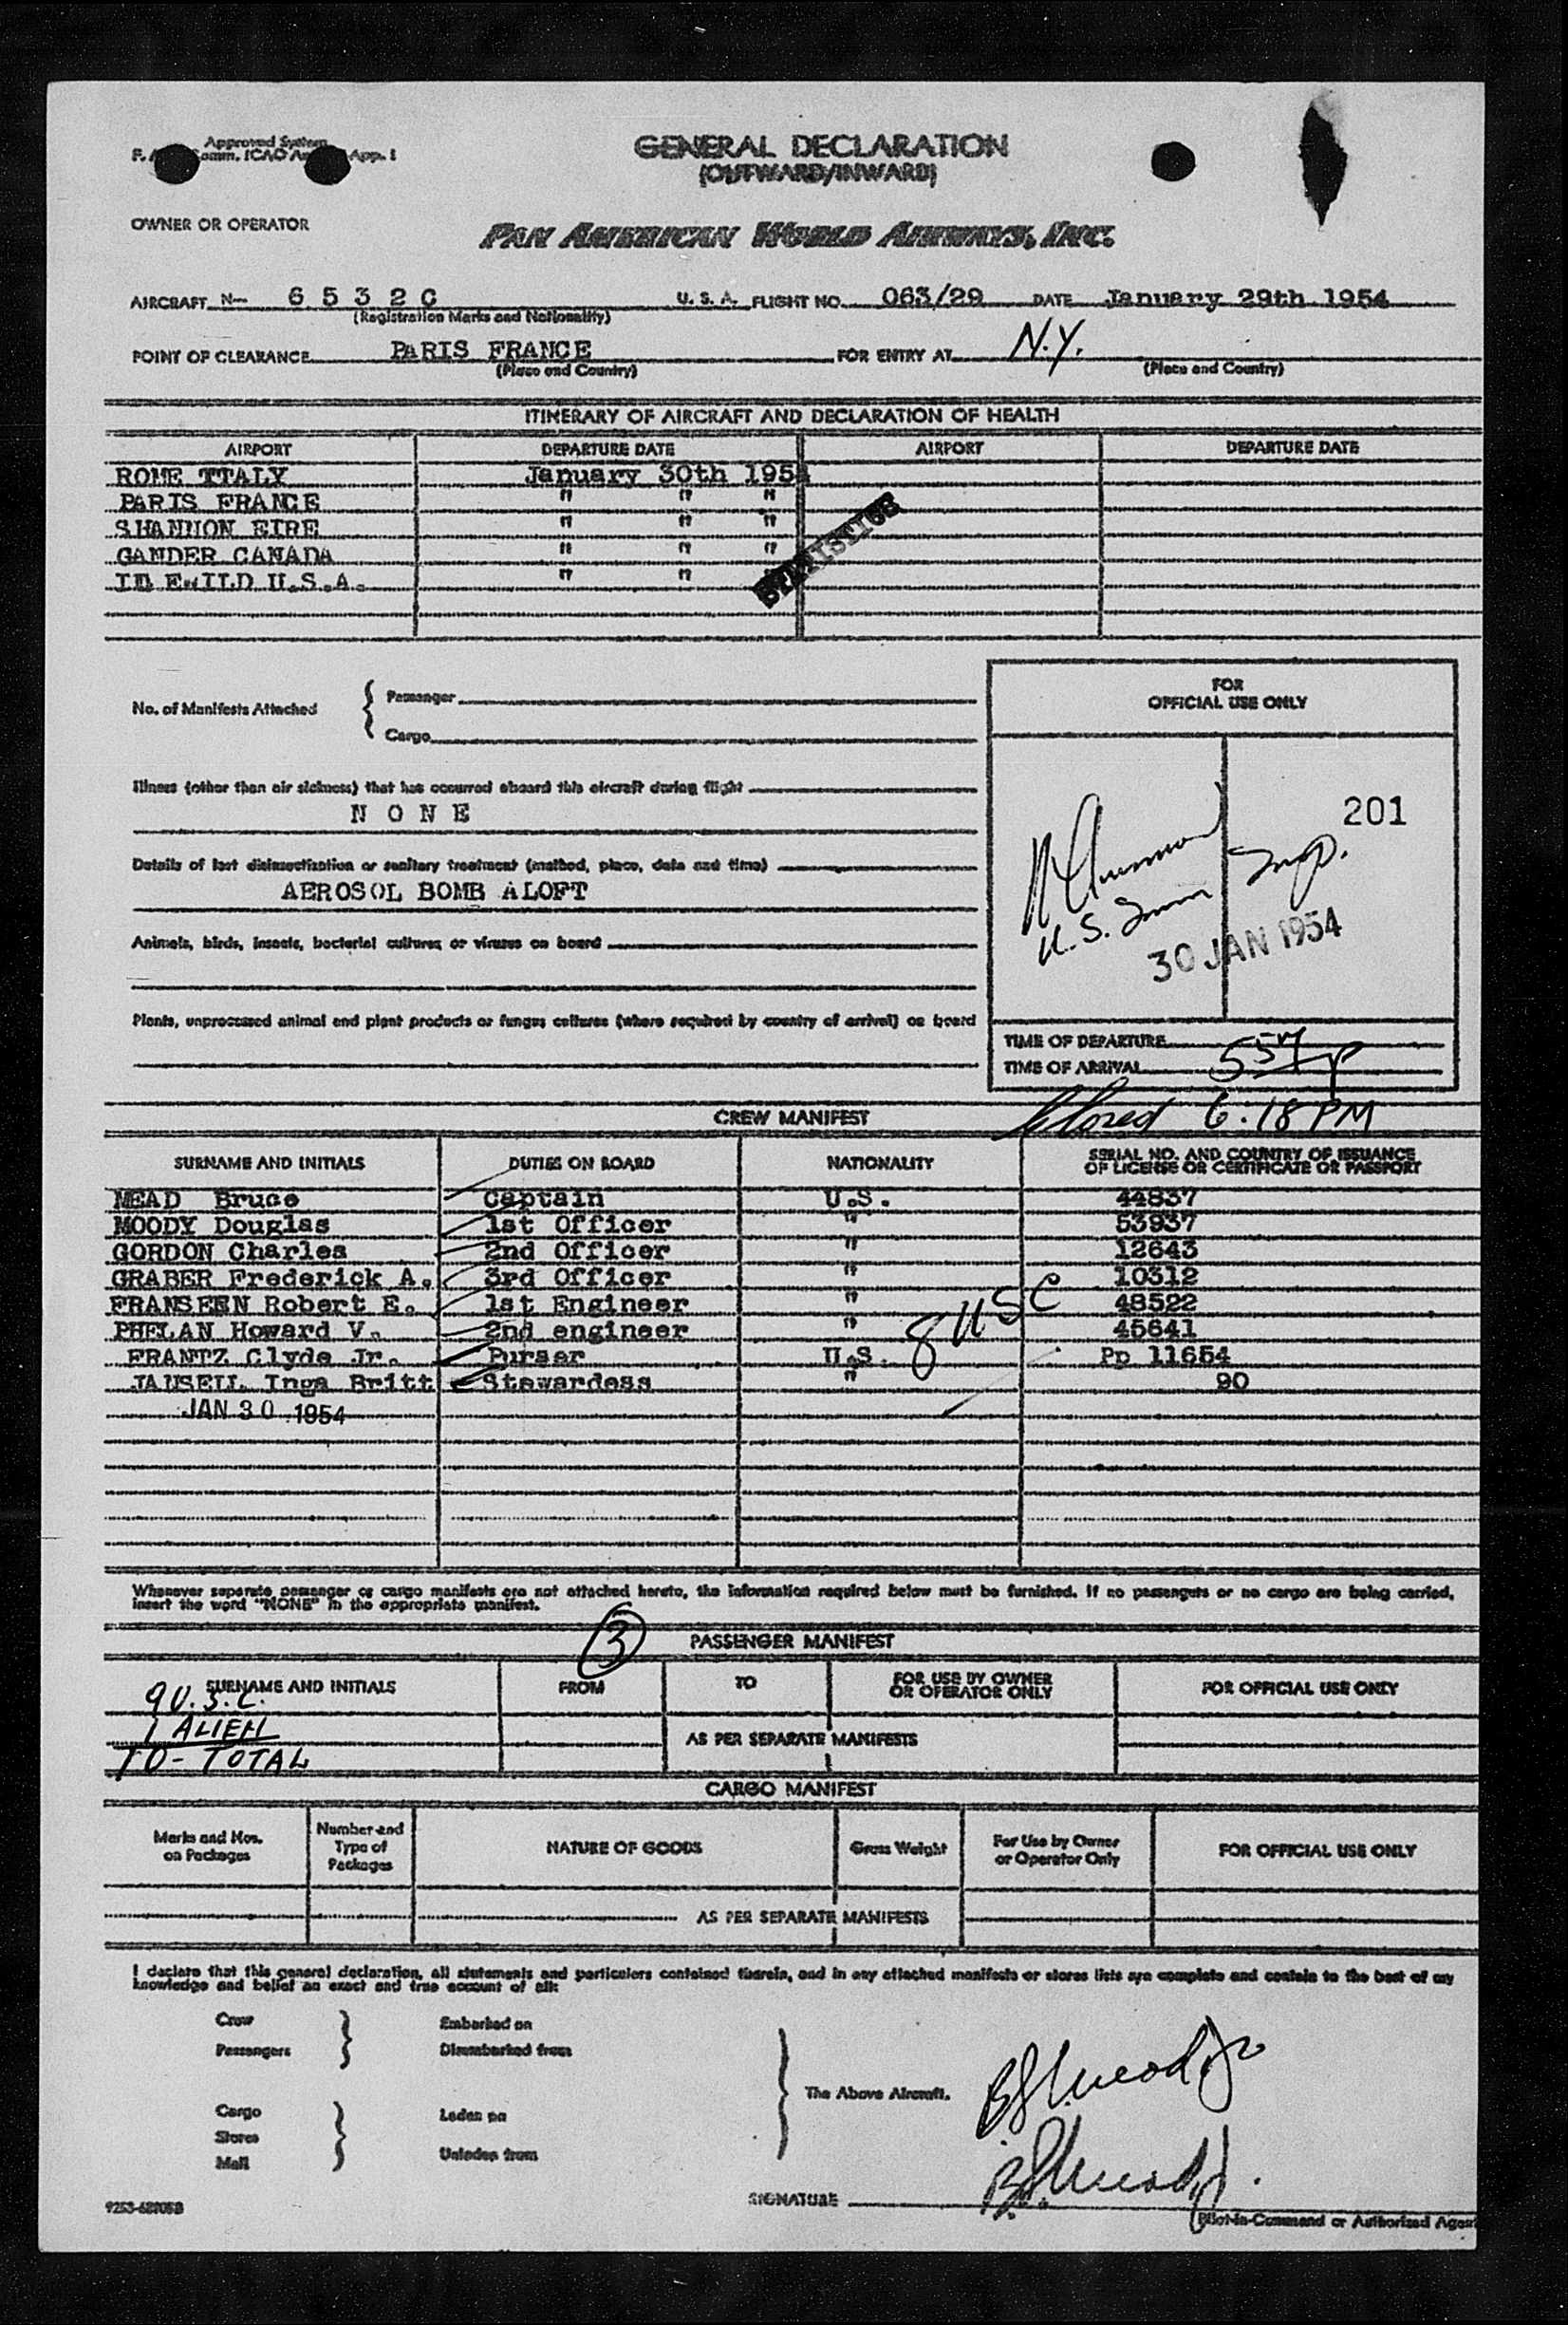 Approved System
GENERAL DECLARATION
(OUTWARD/INWARD)
OWNER OR OPERATOR
PAN AMERICAN WORLD AIRWAYS, INC.
AIRCRAFT N- 6 5 3 2 C U. S. A. FLIGHT NO. 063/29 DATE January 29th 1954
(Registration Marks and Nationality)
POINT OF CLEARANCE PARIS FRANCE FOR ENTRY AT N.Y.
(Place and Country) (Place and Country)
ITINERARY OF AIRCRAFT AND DECLARATION OF HEALTH
AIRPORT DEPARTURE DATE AIRPORT DEPARTURE DATE
ROME TTALY January 30th 1954
PARIS FRANCE " " "
SHANNON EIRE " " "
GANDER CANADA " " "
U.S.A. " " "
STATISTICS
No. of Manifests Attached { Passenger
Cargo
FOR
OFFICIAL USE ONLY
Illness (other than air sickness) that has occurred aboard this aircraft during flight
N O N E
201
Details of last disinsectization or sanitary treatment (method, place, date and time)
AEROSOL BOMB ALOFT
U.S. Imm Insp.
30 JAN 1954
Animals, birds, insects, bacterial cultures or viruses on board
Plants, unprocessed animal and plant products or fungus cultures (where required by country of arrival) on board
TIME OF DEPARTURE
TIME OF ARRIVAL 557p
Closed 6:18 PM
CREW MANIFEST
SURNAME AND INITIALS DUTIES ON BOARD NATIONALITY SERIAL NO. AND COUNTRY OF ISSUANCE
OF LICENSE OR CERTIFICATE OR PASSPORT
MEAD Bruce Captain U.S. 44837
MOODY Douglas 1st Officer " 53937
GORDON Charles 2nd Officer " 12643
GRABER Frederick A. 3rd Officer " 10312
FRANSEEN Robert E. 1st Engineer " 48522
PHELAN Howard V. 2nd engineer " 45641
8 USC
FRANTZ Clyde Jr. Purser U.S. Pp 11654
JAUSELL Inga Britt Stewardess " 90
JAN 30 1954
Whenever separate passenger or cargo manifests are not attached hereto, the information required below must be furnished. If no passengers or no cargo are being carried,
insert the word "NONE" in the appropriate manifest.
3
PASSENGER MANIFEST
SURNAME AND INITIALS FROM TO FOR USE BY OWNER
OR OPERATOR ONLY FOR OFFICIAL USE ONLY
9 U.S.C.
1 ALIEN
10 - TOTAL
AS PER SEPARATE MANIFESTS
CARGO MANIFEST
Marks and Nos.
on Packages Number and
Type of
Packages NATURE OF GOODS Gross Weight For Use by Owner
or Operator Only FOR OFFICIAL USE ONLY
AS PER SEPARATE MANIFESTS
I declare that this general declaration, all statements and particulars contained therein, and in any attached manifests or stores lists are complete and contain to the best of my
knowledge and belief an exact and true account of all:
Crew Embarked on
Passengers Disembarked from
The Above Aircraft.
Cargo Laden on
Stores
Mail Unladen from
SIGNATURE
(Pilot-in-Command or Authorized Agent